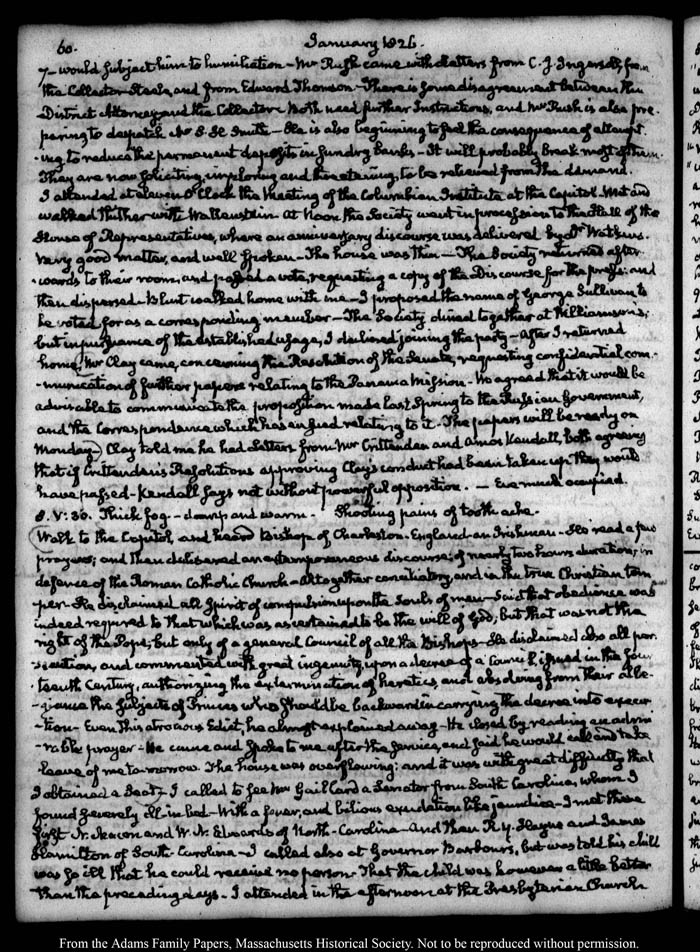 60. January 1826.
7 — would subject him to humiliation — Mr Rush came with Letters from C. J. Ingersoll, from
the Collector Steele, and from Edward Thomson — There is some disagreement between the
District Attorney and the Collector. Both need further Instructions, and Mr Rush is also pre-
paring to despatch Mr Smith — He is also beginning to feel the consequence of attempt-
-ing to reduce the permanent deposits in sundry Banks — It will probably break most of them.
They are now soliciting, imploring and threatening, to be relieved from the demand.
I attended at eleven O'Clock the meeting of the Columbian Institute at the Capitol. Met and
walked thither with Wallenstein. At Noon the Society went in procession to the Hall of the
House of Representatives, where an anniversary discourse was delivered by Dr Watkins.
Very good matter, and well spoken — The house was thin — The Society returned after-
-wards to their room, and passed a vote, requesting a copy of the Discourse for the press: and
then dispersed. Blunt walked home with me — I proposed the name of George Sullivan to
be voted for as a corresponding member — The Society dined together at Williamson's;
but in pursuance of the established usage, I declined joining the party — After I returned
home, Mr Clay came, concerning the Resolution of the Senate, requesting confidential com-
-munication of further papers relating to the Panama Mission. We agreed that it would be
advisable to communicate the proposition made last Spring to the Russian Government,
and the Correspondence which has ensued relating to it. The papers will be ready on
Monday — Clay told me he had Letters from Mr Crittenden and Amos Kendall, both agreeing
that if Crittenden's Resolutions approving Clay's conduct had been taken up they would
have passed — Kendall says not without powerful opposition. — Eve much occupied.
8. V:30. Thick fog — damp and warm. Shooting pains of tooth ache.
Walk to the Capitol, and heard Bishop of Charleston. England an Irishman — He read a few
prayers; and then delivered an extemporaneous discourse; of nearly two hours duration, in
defence of the Roman Catholic Church — Altogether conciliatory, and in the true Christian tem-
per. He disclaimed all Spirit of compulsion upon the Souls of men — Said that obedience was
indeed required to that which was ascertained to be the will of God; but that was not the
right of the Pope, but only of a general Council of all the Bishops — He disclaimed also all per-
-secution, and commented with great ingenuity upon a decree of a Council, issued in the four-
-teenth Century, authorizing the extermination of heretics, and absolving from their alle-
-giance the subjects of Princes who should be backward in carrying the decree into execu-
-tion — Even this atrocious Edict, he almost explained away — He closed by reading an admi-
-rable prayer — He came and spoke to me after the service, and said he would call and take
leave of me to-morrow. The house was overflowing: and it was with great difficulty that
I obtained a Seat — I called to see Mr Gaillard a Senator from South Carolina, whom I
found severely ill in bed — With a fever, and bilious exudation like jaundice — I met there
first N. Macon and W. N. Edwards of North-Carolina — And then R. Y. Hayne and James
Hamilton of South-Carolina — I called also at Governor Barbour's, but was told his child
was so ill that he could receive no person. That the child was however a little better
than the preceding days. I attended in the afternoon at the Presbyterian Church
From the Adams Family Papers, Massachusetts Historical Society. Not to be reproduced without permission.